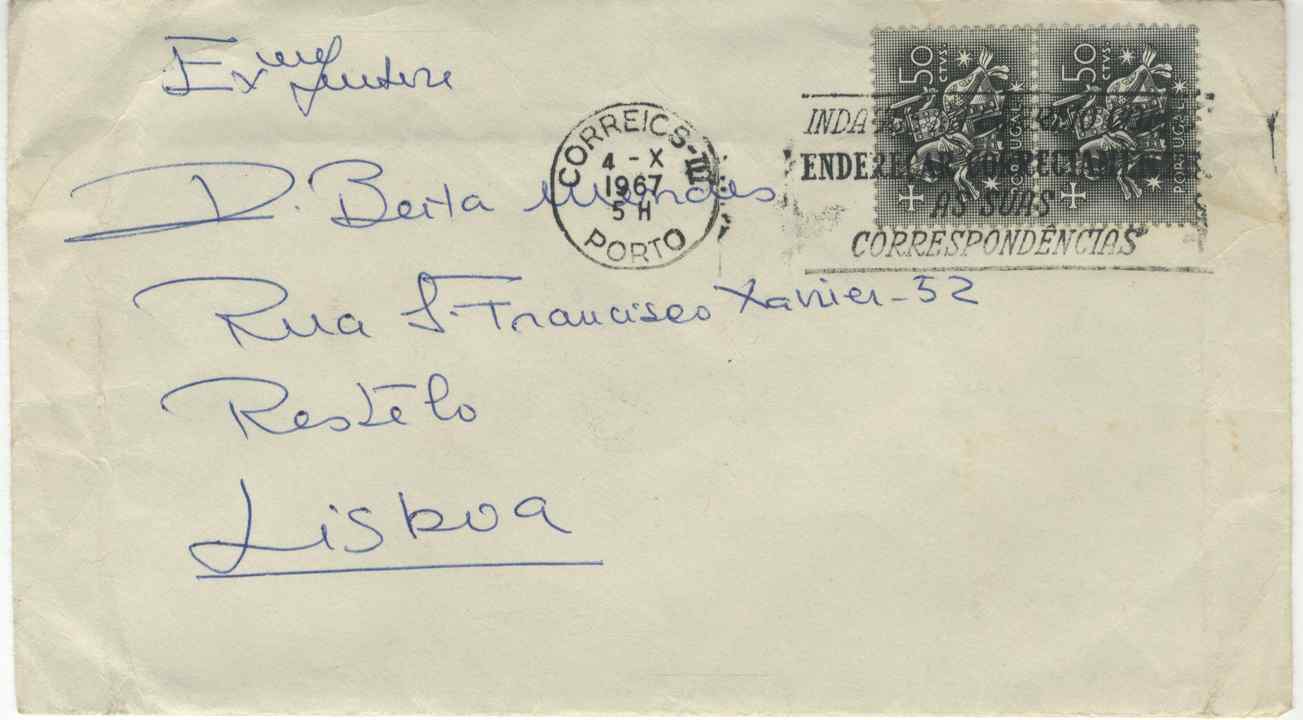 Exma Senhora
D. Berta Mendes
Rua S. Francisco Xavier - 32
Restêlo
Lisboa
CORREIOS - III
4 - X
1967
5 H
PORTO
50 CTVS.
PORTUGAL
50 CTVS.
PORTUGAL
ENDEREÇAR CORRECTAMENTE
AS SUAS
CORRESPONDÊNCIAS